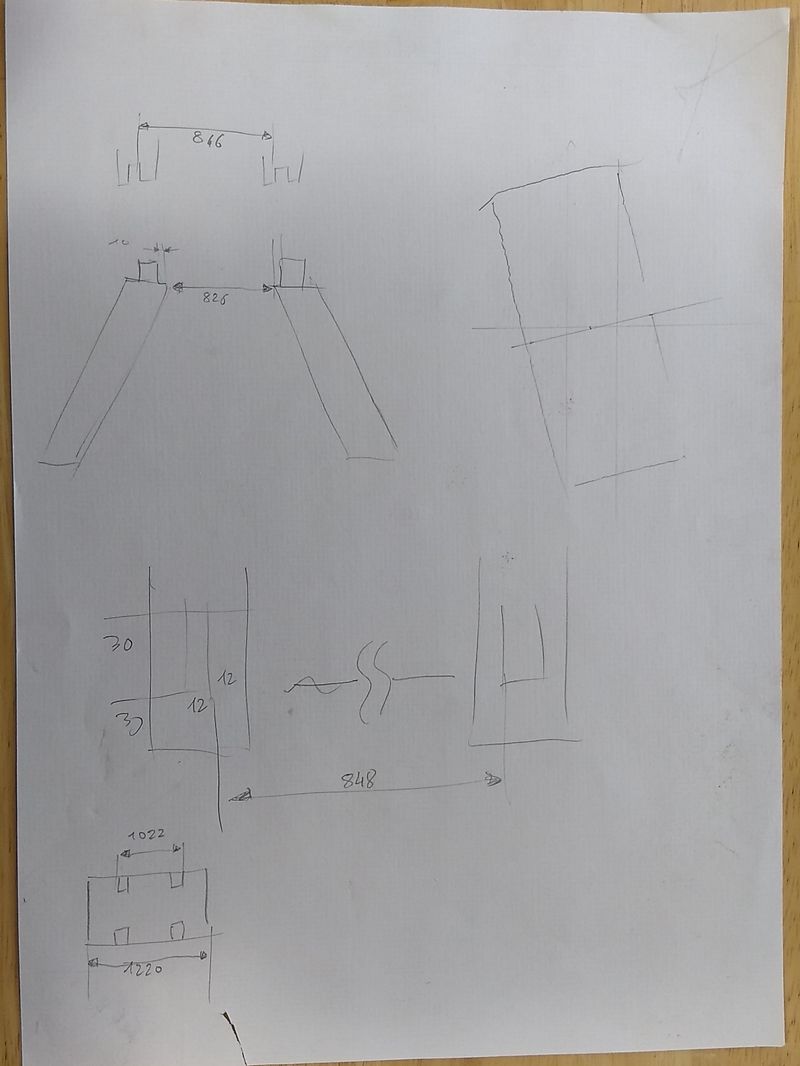 846
10
826
30
12
12
30
848
1022
1220